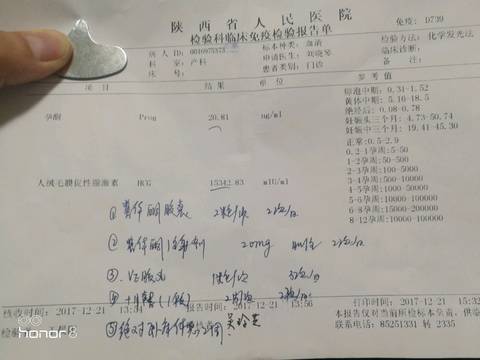 陕西省人民医院
检验科临床免疫检验报告单
免疫: D739
病人ID: 0010975373 标本种类: 血清 检验方法: 化学发光法
科 室: 产科 申请医生: 刘晓琴 临床诊断:
床 号: 患者类别: 门诊 备 注:
项 目 结 果 单 位 参 考 值
孕酮 Prog 20.81 ng/ml
卵泡中期: 0.31-1.52
黄体中期: 5.16-18.5
绝经后: 0.08-0.78
妊娠头三个月: 4.73-50.74
妊娠中三个月: 19.41-45.30
人绒毛膜促性腺激素 HCG 15342.83 mIU/ml
正常:0.5-2.9
0.2-1孕周:5-50
1-2孕周:50-500
2-3孕周:100-5000
3-4孕周:500-10000
4-5孕周:1000-50000
5-6孕周:10000-100000
6-8孕周:15000-200000
8-12孕周:10000-100000
① 黄体酮胶囊 2粒/次 2次/日
② 黄体酮注射剂 20mg 2次/日
③ VE胶丸 1粒/次
⑤ 绝对卧床休息
接收时间: 2017-12-21 13:51 报告时间: 2017-12-21 13:56 打印时间: 2017-12-21 15:32
本报告仅对当前所检标本负责, 供临
联系电话: 85251331 转 2335
honor 8